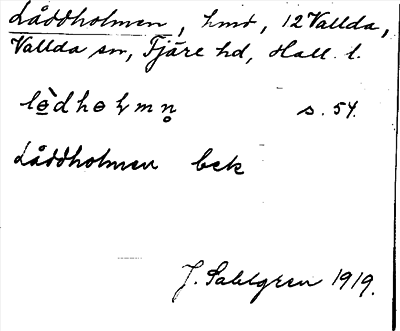 Låddholmen, hmd, 12 Vallda,
Vallda sn, Fjäre hd, Hall. l.
lèdhɵɫmn̥ s. 54.
Låddholmen bek
J. Sahlgren 1919.